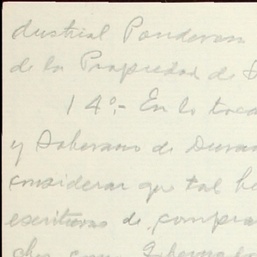 dustrial Ponderosa
de la Propiedad de
14o.- En lo toca
y Soberano de Duran
considerar que tal he
escrituras de compra